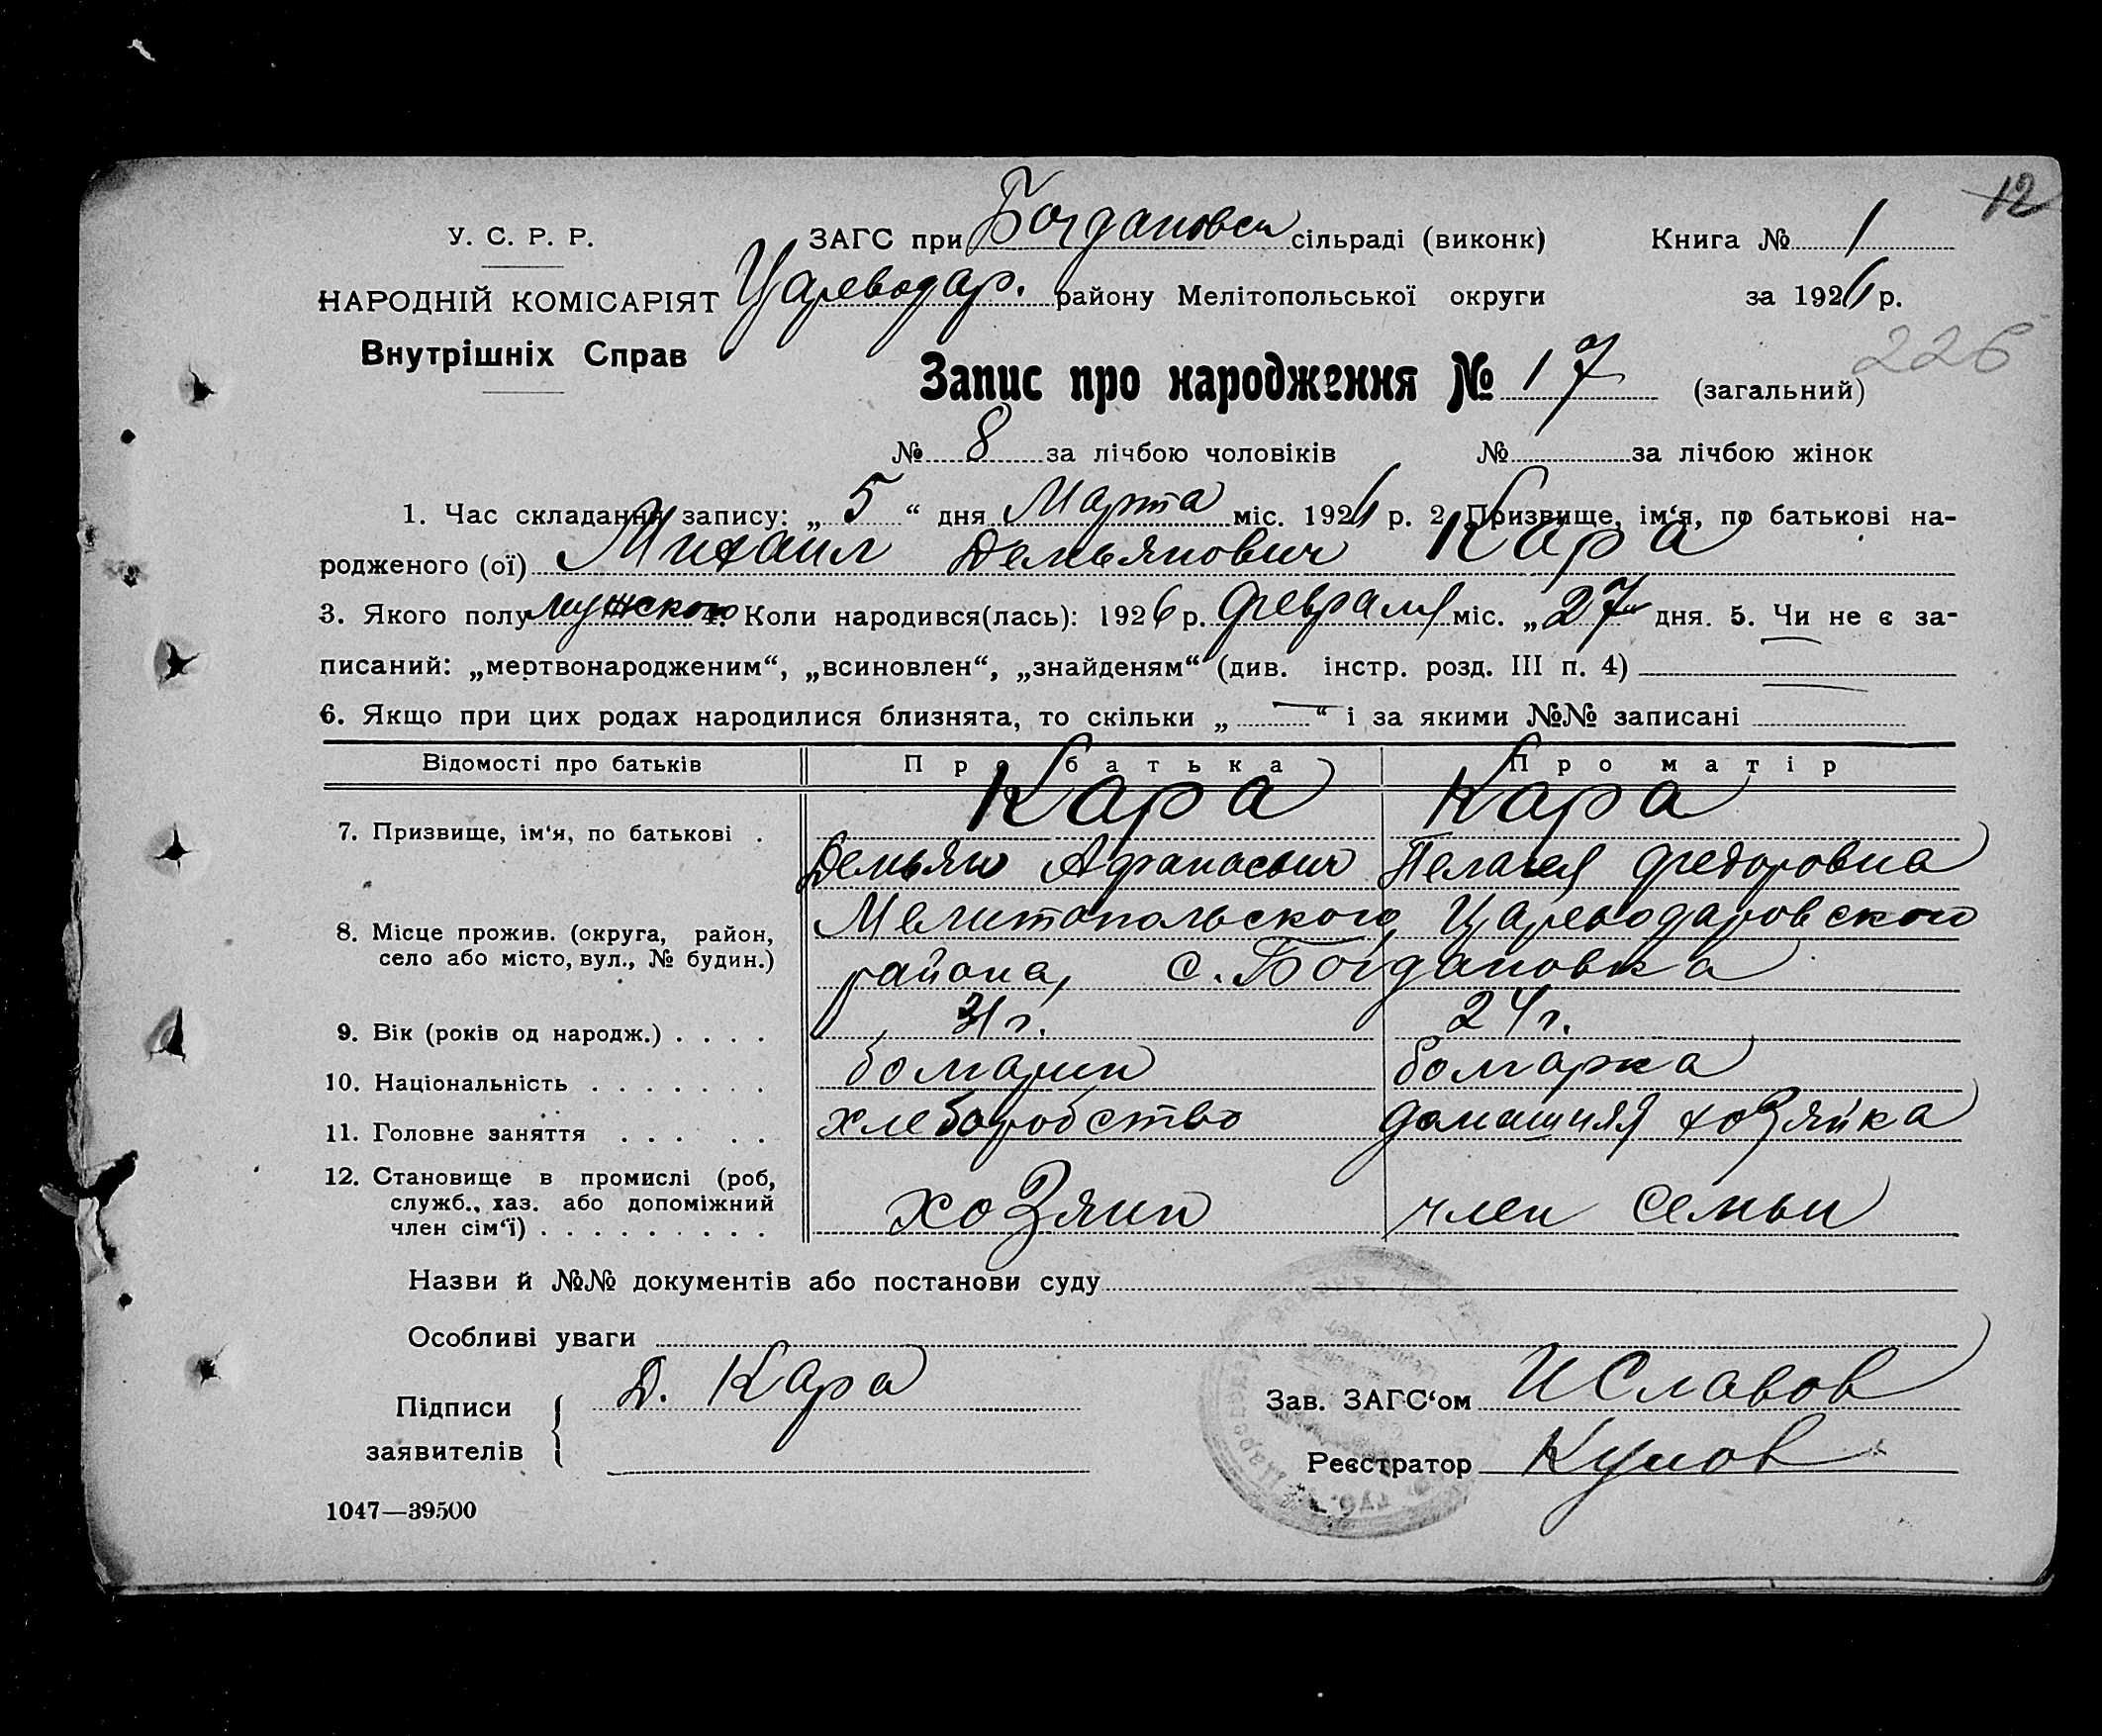 12
У. С. Р. Р.
ЗАГС при Богдановск сільраді (виконк)
Книга № 1
НАРОДНІЙ КОМІСАРІЯТ
Цареводар. району Мелітопольської округи
за 1926 р.
Внутрішніх Справ
226
Запис про народження № 17 (загальний)
№ 8 за лічбою чоловіків № за лічбою жінок
1. Час складання запису: „ 5 “ дня Марта міс. 1926 р. 2. Призвище, ім‘я, по батькові на-
родженого (ої) Михаил Демьянович Кара
3. Якого полу мужского 4. Коли народився(лась): 1926 р. февраля міс. „27“ дня. 5. Чи не є за-
писаний: „мертвонародженим“, „всиновлен“, „знайденям“ (див. інстр. розд. III п. 4)
6. Якщо при цих родах народилися близнята, то скільки „ — “ і за якими №№ записані
Відомості про батьків Про батька Про матір
Кара Кара
7. Призвище, ім‘я, по батькові .
Демьян Афанасьич Пелагея Федоровна
8. Місце прожив. (округа, район,
село або місто, вул., № будин.)
Мелитопольского, Цареводаровского
района, с. Богдановка
9. Вік (років од народж.) . . . . 31 г. 24 г.
10. Національність . . . . . . . болгарин болгарка
11. Головне заняття . . . . . хлеборобство домашняя хозяйка
12. Становище в промислі (роб,
служб., хаз. або допоміжний
член сім‘ї) . . . . . . . . . хозяин член семьи
Назви й №№ документів або постанови суду
Особливі уваги
Підписи
заявителів
Д. Кара
Зав. ЗАГС‘ом И Славов
Реєстратор
1047—39500